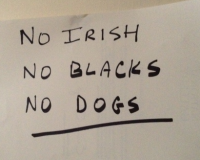 NO IRISH
NO BLACKS
NO DOGS